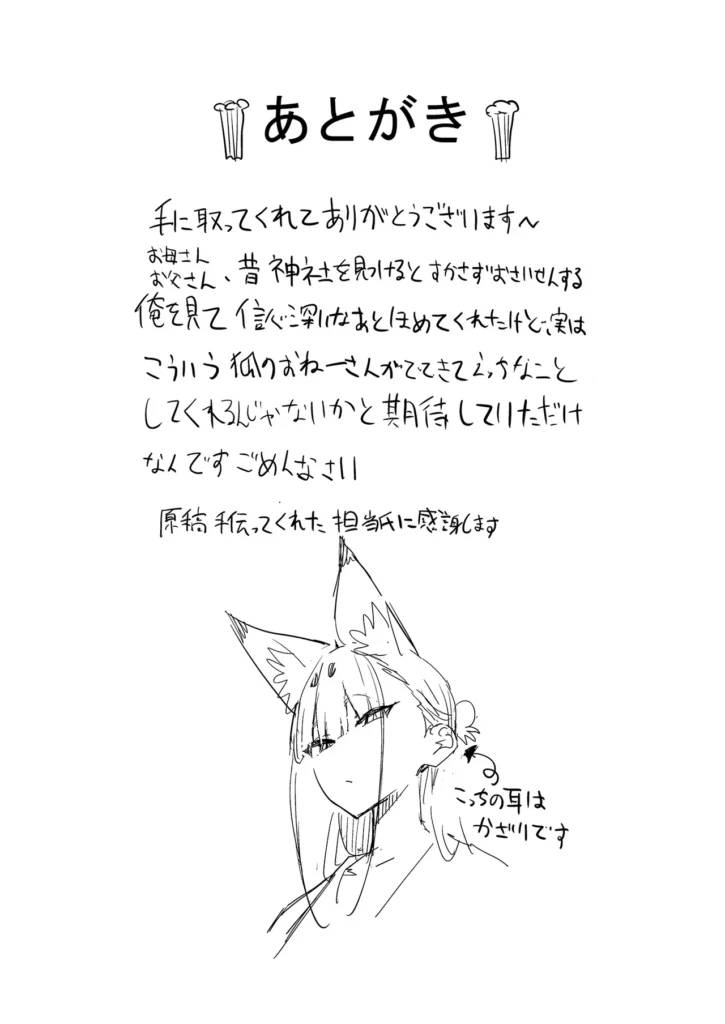 あとがき
手に取ってくれてありがとうございます〜
お母さん
お父さん、昔神社を見つけるとすかさずおさいせんする
俺を見て信心深いなあとほめてくれたけど、実は
こういう狐のおねーさんがでてきてえっちなこと
してくれるんじゃないかと期待していただけ
なんですごめんなさい
原稿手伝ってくれた担当氏に感謝します
こっちの耳は
かざりです